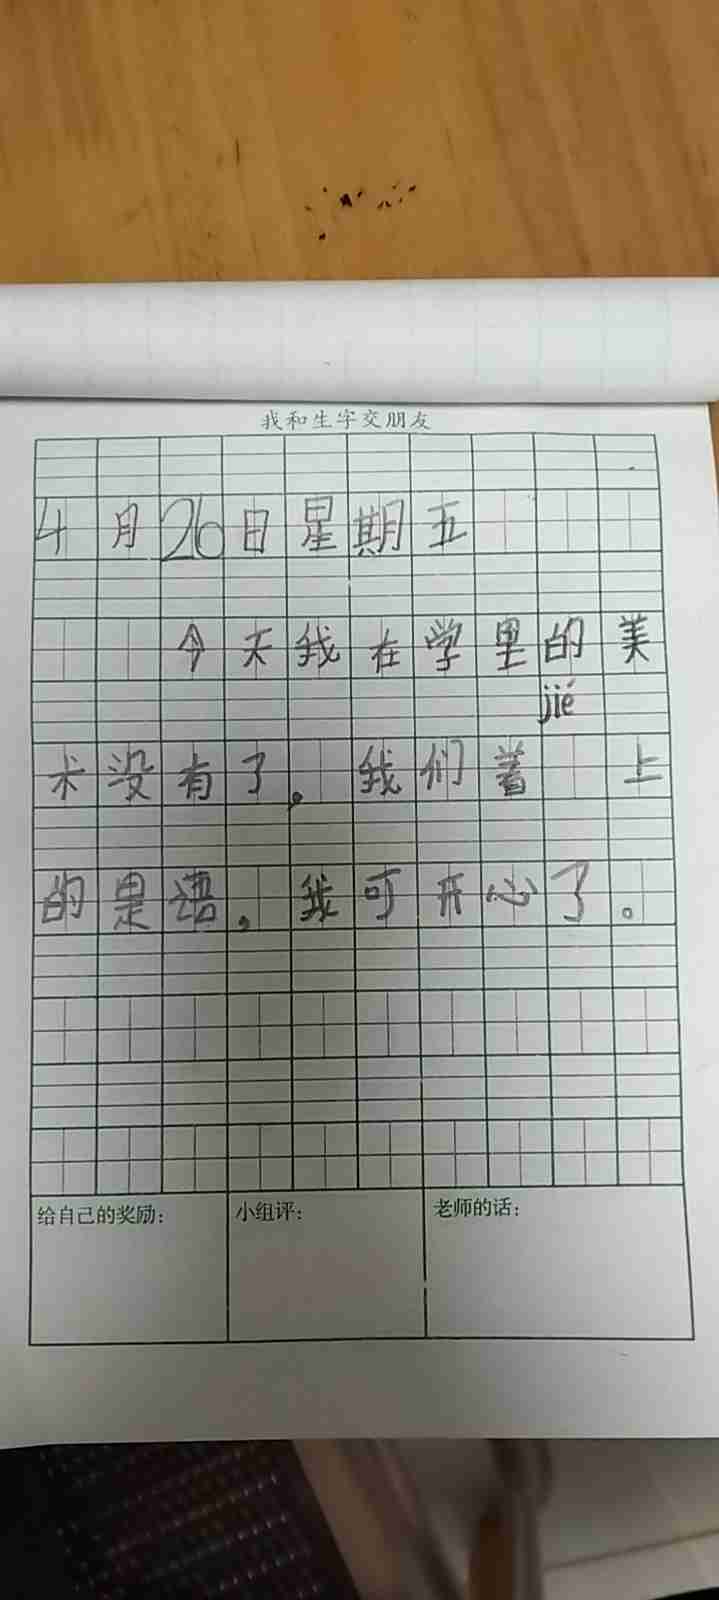 我和生字交朋友
4月26日星期五
今天我在学里的美
jié
术没有了。我们着 上
的是语,我可开心了。
给自己的奖励: 小组评: 老师的话: